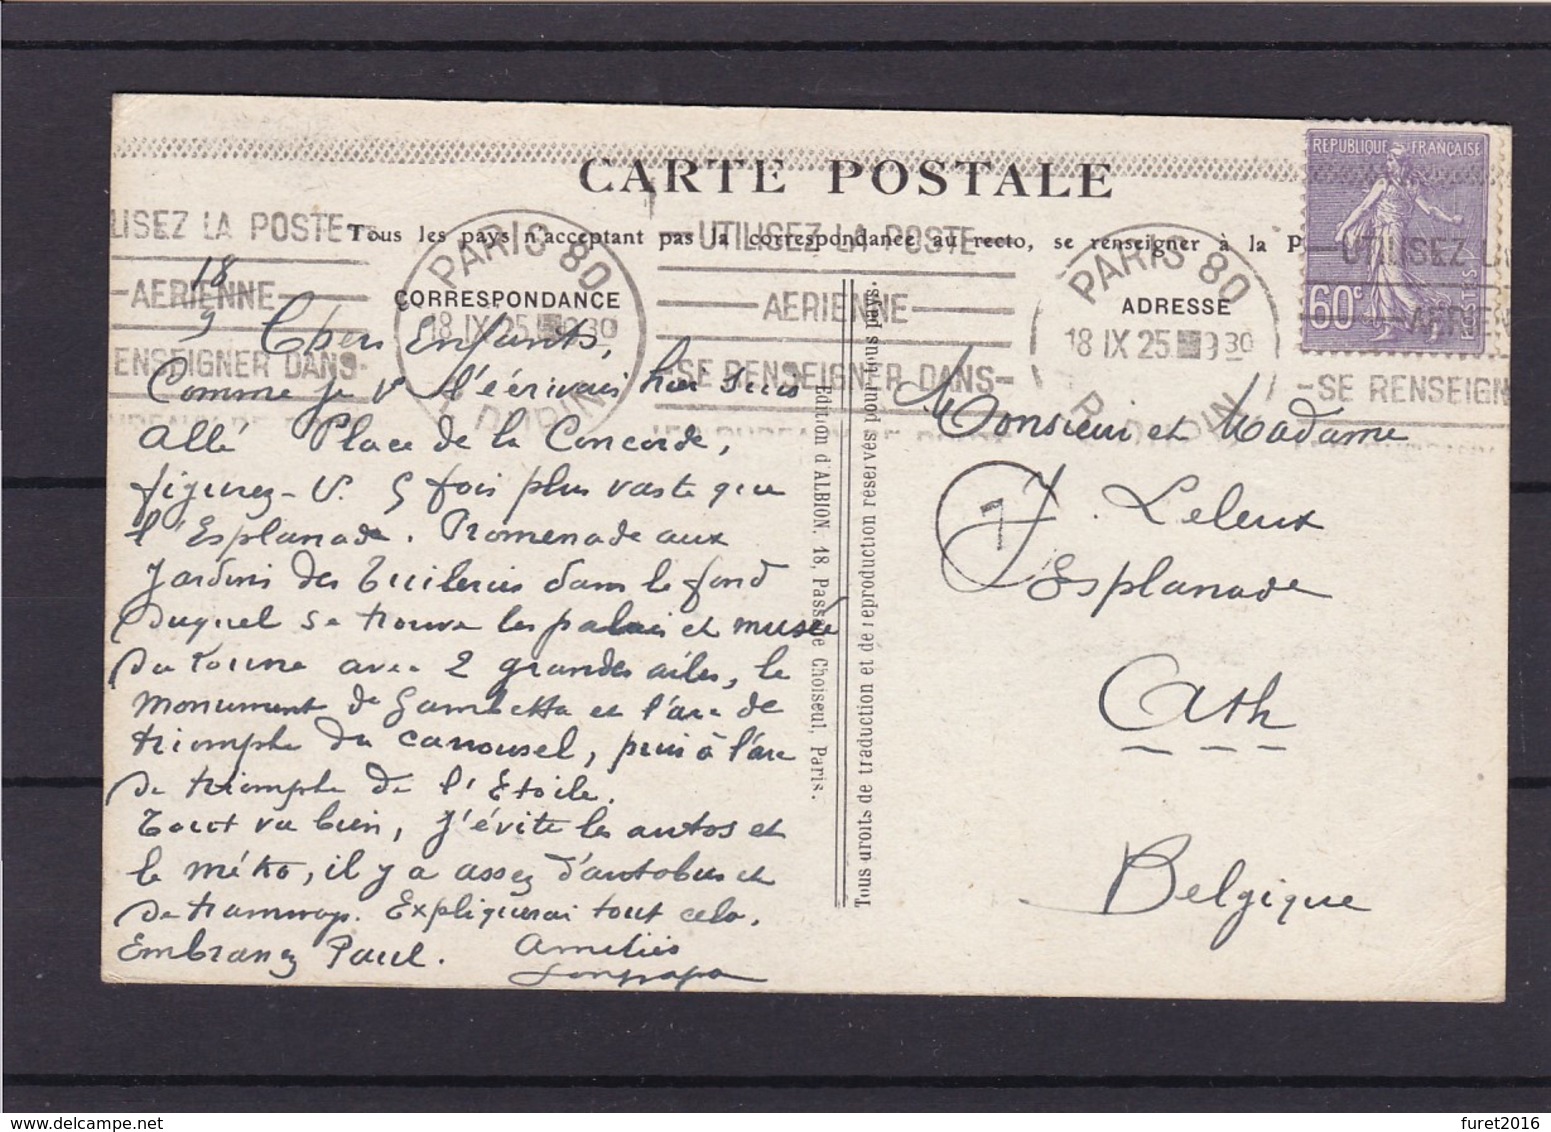 CARTE POSTALE
Tous les pays n'acceptant pas la correspondance au recto, se renseigner à la P
CORRESPONDANCE
ADRESSE
REPUBLIQUE FRANÇAISE
60c
POSTES
LISEZ LA POSTE
AERIENNE
ENSEIGNER DANS
PARIS 80
18 IX 25 9 30
R. DUPIN
UTILISEZ LA POSTE
AERIENNE
SE RENSEIGNER DANS
PARIS 80
18 IX 25 9 30
R. DUPIN
UTILISEZ LA
AERIEN
SE RENSEIGN
18
9
Chers Enfants,
Comme je v l'écrivais hier suis
allé Place de la Concorde,
figurez-v. 5 fois plus vaste que
l'Esplanade. Promenade aux
Jardins des Tuileries dans le fond
duquel se trouve les palais et musée
du avec 2 grandes ailes, le
monument de Gambetta et l'arc de
triomphe du carrousel, puis à l'arc
de triomphe de l'Etoile.
Tout va bien, j'évite les autos et
le métro, il y a assez d'autobus et
de tramways. Expliquerai tout cela.
Embrassez Paul. Amitiés
Bonpapa
Edition d'ALBION, 18, Passage Choiseul, Paris.
Tous droits de traduction et de reproduction réservés pour tous pays.
Monsieur et Madame
J. Leleux
1
Esplanade
Ath
Belgique
furet2016